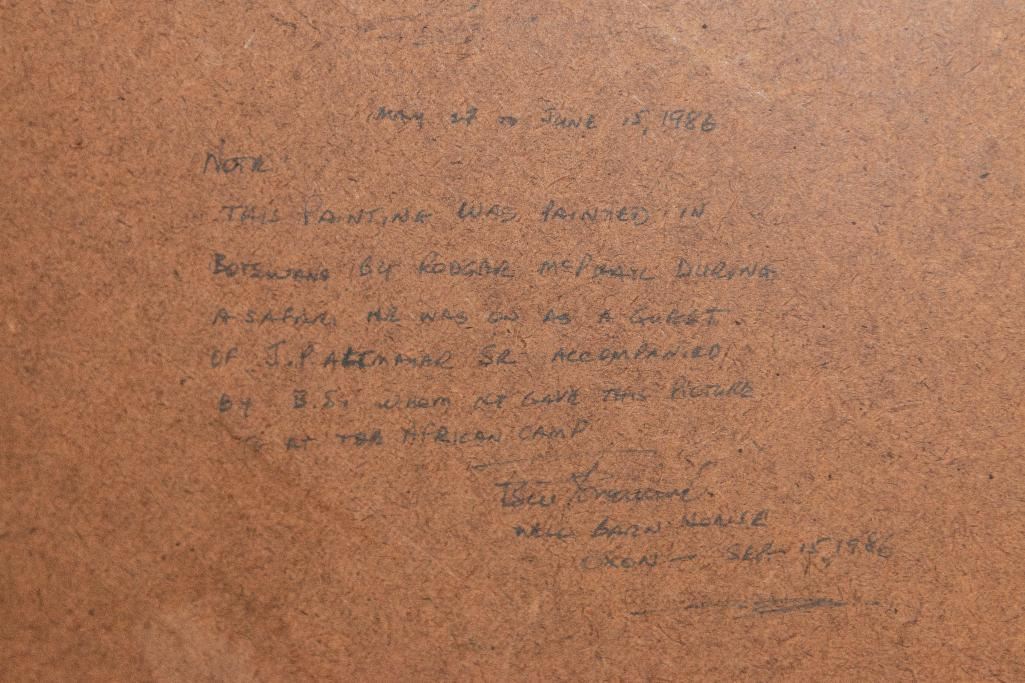 MAY 27 TO JUNE 15, 1986
NOTE:
THIS PAINTING WAS PAINTED IN
BOTSWANA BY RODGER MCPHAIL DURING
A SAFARI HE WAS ON AS A GUEST
OF J.P ALTMAYAR SR ACCOMPANIED
BY B.S. WHOM HE GAVE THIS PICTURE
AT THE AFRICAN CAMP
BARN HOUSE
OXON — SEP 15, 1986